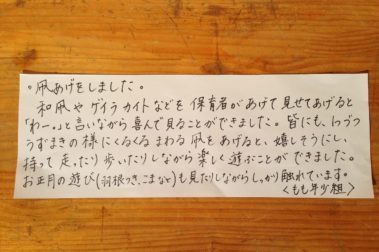 ・凧あげをしました。
和凧やゲイラカイトなどを保育者があげて見せてあげると
「わー。」と言いながら喜んで見ることができました。皆にも、1つづつ
うずまきの様にくるくるまわる凧をあげると、嬉しそうにし、
持って走ったり歩いたりしながら楽しく遊ぶことができました。
お正月の遊び(羽根つき、こまなど)も見たりしながらしっかり触れています。
〈もも年少組〉